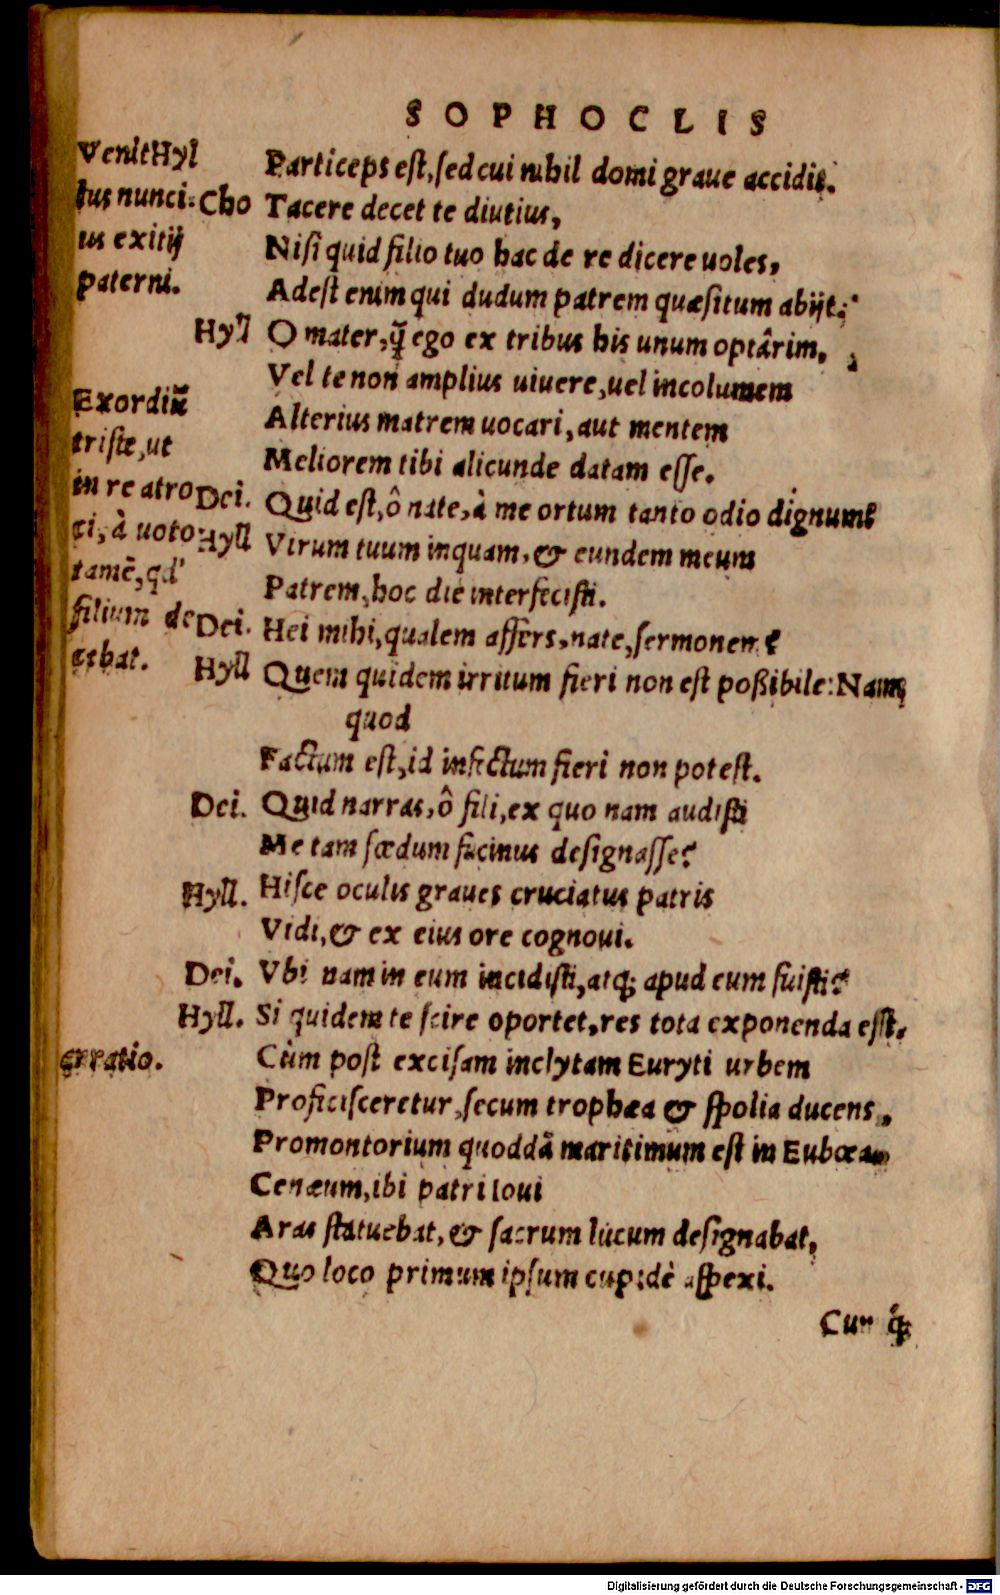 SOPHOCLIS
Venit Hyl
lus nunci-
us exitij
paterni.
Particeps est, sed cui nihil domi graue accidit.
Cho Tacere decet te diutius,
Nisi quid filio tuo hac de re dicere uoles,
Adest enim qui dudum patrem quæsitum abijt.
Hyll O mater, q̃ ego ex tribus his unum optârim,
Vel te non amplius uiuere, uel incolumem
Alterius matrem uocari, aut mentem
Meliorem tibi alicunde datam esse.
Exordiũ
triste, ut
in re atro
ci, à uoto
tamẽ, qd'
filium de
cebat.
Dei. Quid est, ô nate, à me ortum tanto odio dignum?
Hyll Virum tuum inquam, & eundem meum
Patrem, hoc die interfecisti.
Dei. Hei mihi, qualem affers, nate, sermonem?
Hyll Quem quidem irritum fieri non est poßibile: Nam
quod
Factum est, id infectum fieri non potest.
Dei. Quid narras, ô fili, ex quo nam audisti
Me tam fœdum facinus designasse?
Hyll. Hisce oculis graues cruciatus patris
Vidi, & ex eius ore cognoui.
Dei. Vbi nam in eum incidisti, atq; apud eum fuisti?
Hyll. Si quidem te scire oportet, res tota exponenda est.
Narratio.
Cùm post excisam inclytam Euryti urbem
Proficisceretur, secum trophæa & spolia ducens,
Promontorium quoddã maritimum est in Eubœa
Cenæum, ibi patri Ioui
Aras statuebat, & sacrum lucum designabat,
Quo loco primum ipsum cupidè aspexi.
Cumq́;
Digitalisierung gefördert durch die Deutsche Forschungsgemeinschaft - DFG